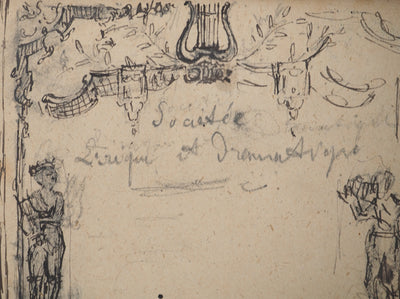 Société
Lyrique et Dramatique